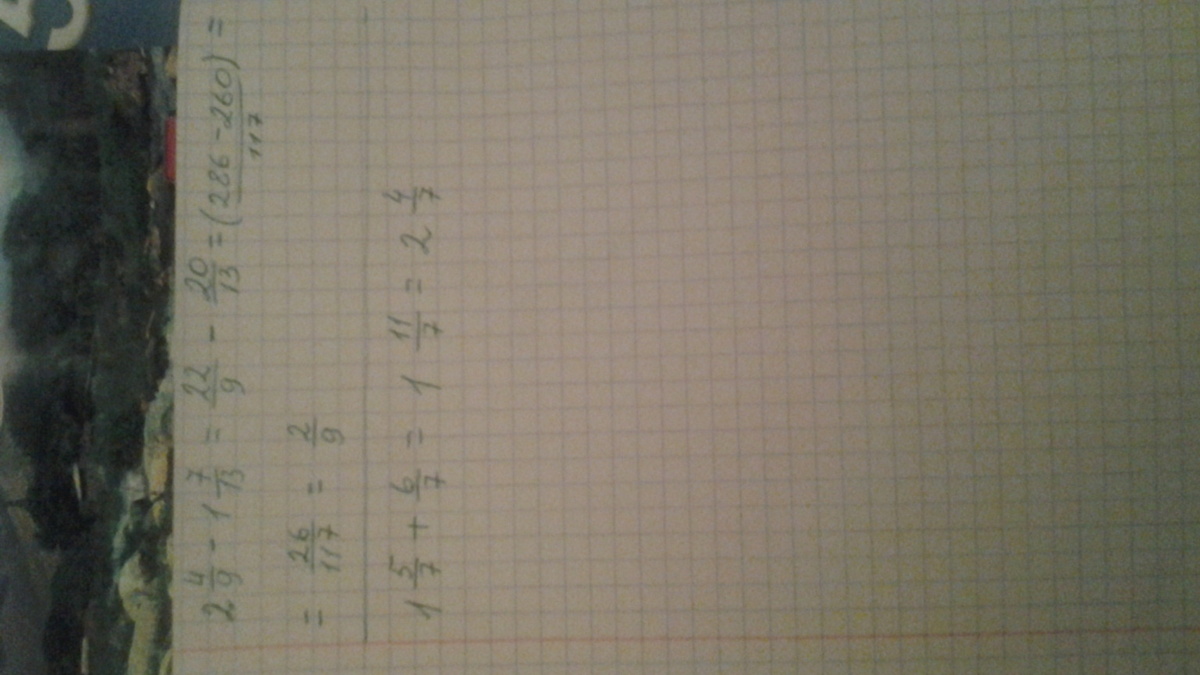 2 4/9 - 1 7/13 = 22/9 - 20/13 = (286 - 260)/117 =
= 26/117 = 2/9
1 5/7 + 6/7 = 1 11/7 = 2 4/7